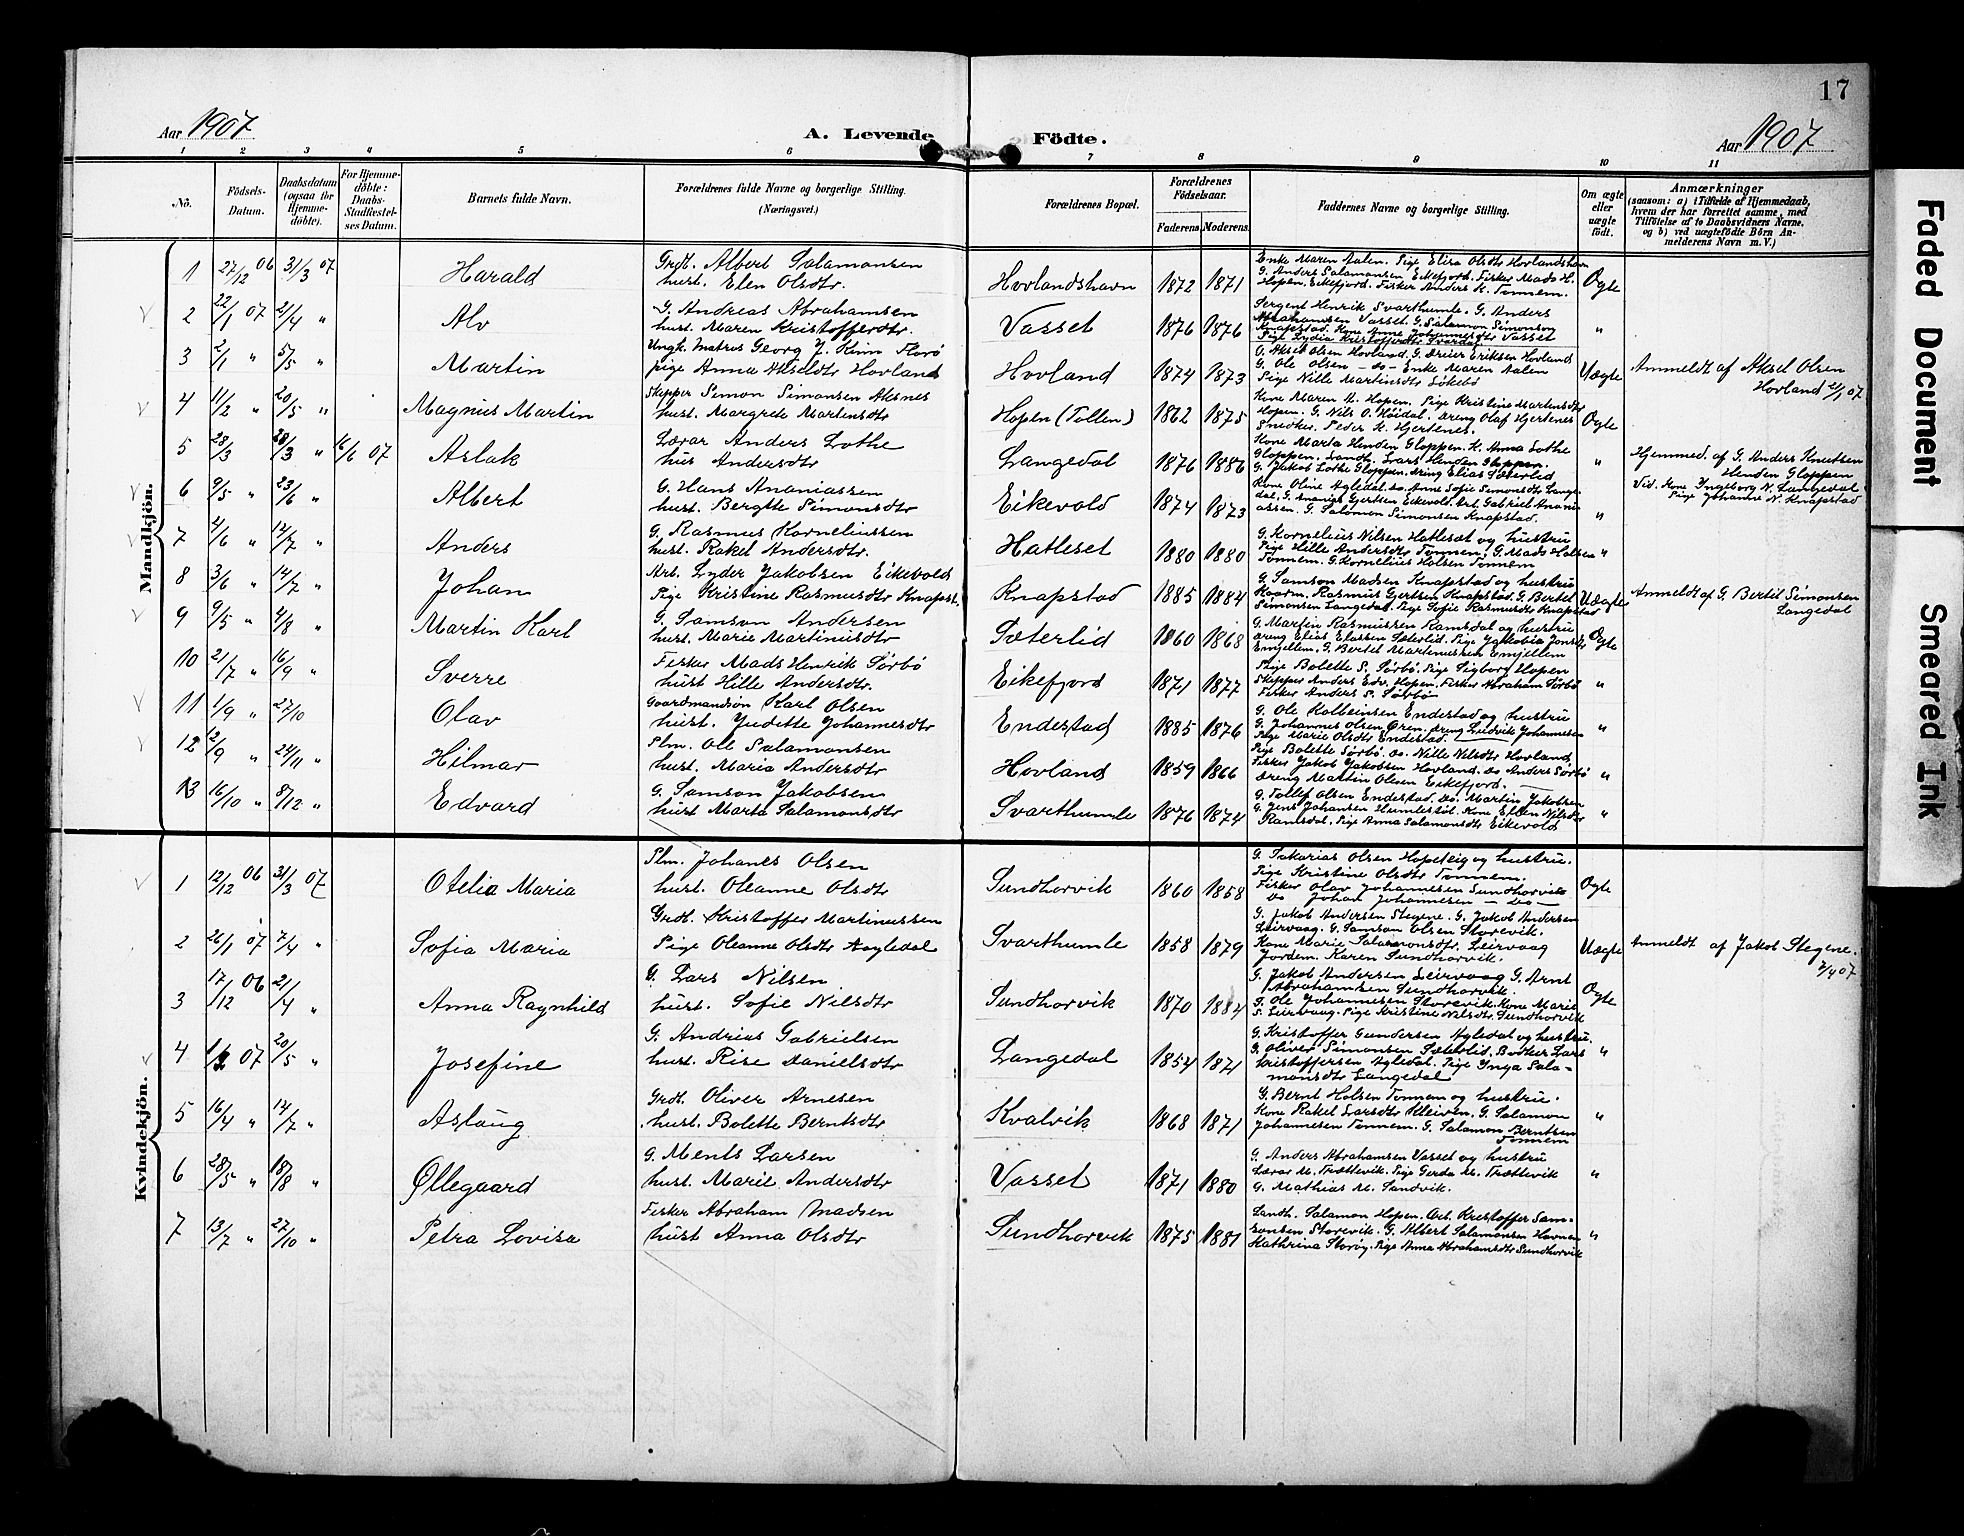 17
Aar 1907
A. Levende Födte.
Aar 1907
1 2 3 4 5 6 7 8 9 10 11
Nô. Födsels-Datum. Daabsdatum (ogsaa for Hjemmedöbte). For Hjemmedöbte: Daabs-Stadfæstelses Datum. Barnets fulde Navn. Forældrenes fulde Navne og borgerlige Stilling. (Næringsvei.) Forældrenes Bopæl. Forældrenes Födselsaar. Faderens Moderens Faddernes Navne og borgerlige Stilling. Om ægte eller uægte födt. Anmærkninger (saasom: a) i Tilfælde af Hjemmedaab, hvem der har forrettet samme, med Tilföielse af to Daabsvidners Navne, og b) ved uægtefödte Börn Anmelderens Navn m. V.)
Mandkjön.
1 27/12 06 31/3 07 Harald Grdt. Albert Salamonsen
hust. Elen Olsdtr. Hovlandshavn 1872 1871 Enke Maren Aalen. Pige Elisa Olsdtr Hovlandshavn
G. Anders Salamonsen Eikefjord. Fisker Mads H.
Hopen, Eikefjord. Fisker Anders K. Tonnem. Ogte
2 22/1 07 21/4 " Alv G. Andreas Abrahamsen
hust. Maren Kristofferdtr. Vasset 1876 1876 Sergent Henrik Svarthumle. G. Anders
Abrahamsen Vasset. G. Salamon Simonsen
Knapstad. Kone Anne Johannesdtr Vasset
Pige Lydia Kristoffersdtr "
3 2/1 " 5/5 " Martin Ungk. Matros Georg J. Kinn Florö
pige Anna Akseldtr Hovland Hovland 1874 1873 G. Aksel Olsen Hovland. G. Dreier Eriksen Hovland
G. Ole Olsen - do - Enke Maren Aalen
Pige Nille Martinsdtr Uægte Anmeldt af Aksel Olsen
Hovland 2/1 07
4 11/2 " 20/5 " Magnus Martin Skipper Simon Simonsen Aksnes
hust. Margrete Martensdtr Hopen (Tollen) 1862 1875 Kone Maren H. Hopen. Pige Kristine Martensdtr
Hopen. G. Nils O. Höidal. Dreng Olaf Hjertenes
Snedker Peder K. Hjertenes. Ogte
5 28/3 28/3 " 16/6 07 Aslak Lærar Anders Lothe
hus Andersdtr Langedal 1876 1886 Kone Marta Henden Gloppen. K. Anna Lothe
Gloppen. Landh. Lars Henden Gloppen.
G. Jakob Lothe Gloppen. Dreng Elias Sæterlid " Hjemmed. af G. Anders Knutsen
Henden Gloppen
Vid. Kone Ingeborg N. Langedal
Pige Johanne N. Knapstad
6 9/5 " 23/6 " Albert G. Hans Ananiassen
hust. Bergtte Simonsdtr Eikevold 1874 1873 Kone Oline Agledal. do. Anne Sofie Simonsdtr Lange-
dal, G. Ananias Gjertsen Eikevold. Arb. Gabriel Anani-
assen. G. Salomon Simonsen Knapstad. "
7 4/6 " 14/7 " Anders G. Rasmus Korneliussen
hust. Rakel Andersdtr. Hatleset 1880 1880 G. Kornelius Nilsen Hatleset og hustru
Pige Hille Andersdtr Tonnem. G. Mads Holsen
Tonnem. G. Kornelius Holsen Tonnem "
8 3/6 " 14/7 " Johan Arb. Lyder Jakobsen Eikevold
Pige Kristine Rasmusdtr Knapst. Knapstad 1885 1884 G. Samson Madsen Knapstad og hustru
Rasmus Gjertsen Knapstad. G. Bertel
Simonsen Langedal. Pige Sofie Rasmusdtr Knapstad Uægte Anmeldt af G. Bertil Simonsen
Langedal
9 9/5 " 4/8 " Martin Karl G. Samson Andersen
hust. Marie Martinusdtr Sæterlid 1860 1868 G. Martin Rasmussen Ramsdal og hustru
dreng Elias Eliassen Sæterlid. Pige Jakobia Jonsdtr
Emjellem. G. Bertel Martinussen Emjellem Ogte
10 21/7 " 16/9 " Sverre Fisker Mads Henrik Sörbö
hust Hille Andersdtr. Eikefjord 1871 1877 Pige Bolette S. Sörbö. Pige Sigborg Hopen
Skipper Anders Edv. Hopen. Fisker Abraham Sörbö
Fisker Anders S. Sörbö "
11 1/9 " 27/10 Olav Gaardmandsön Karl Olsen
hust. Juditte Johannesdtr Endestad 1885 1876 G. Ole Kolbeinsen Endestad og hustru
G. Johannes Olsen Ören. dreng Ludvik Johannesen
Pige Marie Olsdtr Endestad. "
12 2/9 " 24/11 " Hilmar Plm. Ole Salamonsen
hust. Maria Andersdtr Hovland 1859 1866 Pige Bolette Sörbö. do. Nille Nilsdtr Hovland
Fisker Jakob Jakobsen Hovland. do Anders Sörbö
dreng Martin Olsen Eikefjord. "
13 16/10 " 8/12 " Edvard G. Samson Jakobsen
hust Marta Salamonsdtr Svarthumle 1876 1874 G. Tollef Olsen Endestad. do. Martin Jakobsen
G. Jens Johansen Humlestöl. Kone Ellen Nilsdtr
Ramsdal. Pige Anna Salamonsdtr Eikevold "
Kvindekjön.
1 12/12 06 31/3 07 Otelia Maria Plm. Johanes Olsen
hust. Oleanne Olsdtr Sundhorvik 1860 1858 G. Sakarias Olsen Hopeteig og hustru.
Pige Kristine Olsdtr Tonnem.
Fisker Olav Johannesen Sundhorvik
Do Johan Johannesen - do - Ogte
2 26/1 07 7/4 " Sofia Maria Grdt. Kristoffer Martinussen
Pige Oleanne Olsdtr Aagledal Svarthumle 1858 1879 G. Jakob Andersen Stegene. G. Jakob Andersen
Leirvaag. G. Samson Olsen Storevik.
Kone Marie Salamonsdtr. Leirvaag
Jordem. Karen Sundhorvik. Uægte Anmeldt af Jakob Stegene.
7/4 07
3 17/12 06 21/4 " Anna Ragnhild G. Lars Nilsen
hust. Sofie Nilsdtr Sundhorvik 1870 1884 G. Jakob Andersen Leirvaag G. Arnt
Abrahamsen Sundhorvik.
G. Ole Johannesen Storevik. Kone Marie
S. Leirvaag. Pige Kristine Nilsdtr Sundhorvik Ogte
4 07 20/5 " Josefine G. Andreas Gabrielsen
hust. Rise Danielsdtr Langedal 1854 1871 G. Kristoffer Gundersen Agledal og hustru.
G. Oliver Simonsen Sæterlid. Bödker Lars
Kristoffersen Agledal. Pige Inga Sala-
monsdtr Langedal "
5 16/4 " 14/7 " Aslaug Grdt. Oliver Arnesen
hust. Bolette Berntsdtr Kvalvik 1868 1871 G. Bernt Holsen Tonnem og hustru.
Kone Rakel Larsdtr Kleiven. G. Salamon
Johannesen Tonnem. G. Salamon Berntsen
Tonnem "
6 28/5 " 18/8 " Øllegaard G. Ments Larsen
hust. Marie Andersdtr Vasset 1871 1880 G. Anders Abrahamsen Vasset og hustru
Lærar M. Trættevik. Pige Gerda M. Trættevik
G. Mathias M. Sandvik. "
7 13/7 " 27/10 " Petra Lovisa Fisker Abraham Madsen
hust Anna Olsdtr Sundhorvik 1875 1881 Landh. Salamon Hopen. Arb. Kristoffer Sam-
sonsen Storevik. G. Albert Salamonsen Havnen
Kathrina Storöy. Pige Anna Abrahamsdtr Sundhorvik "
Faded Document
Smeared Ink